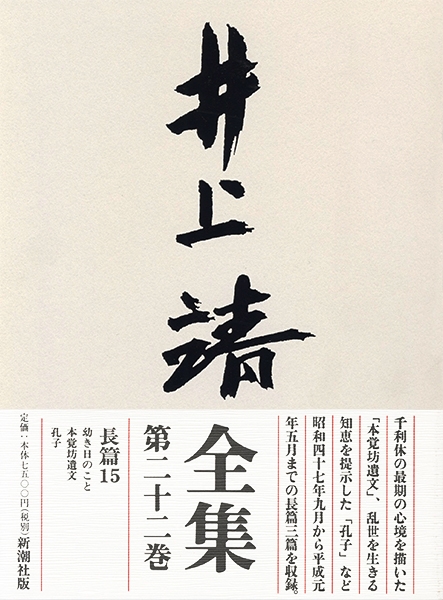 井上靖
全集
第二十二巻
千利休の最期の心境を描いた
「本覚坊遺文」、乱世を生きる
知恵を提示した「孔子」など
昭和四十七年九月から平成元
年五月までの長篇三篇を収録。
長篇15
幼き日のこと
本覚坊遺文
孔子
定価：本体七五〇〇円（税別）新潮社版